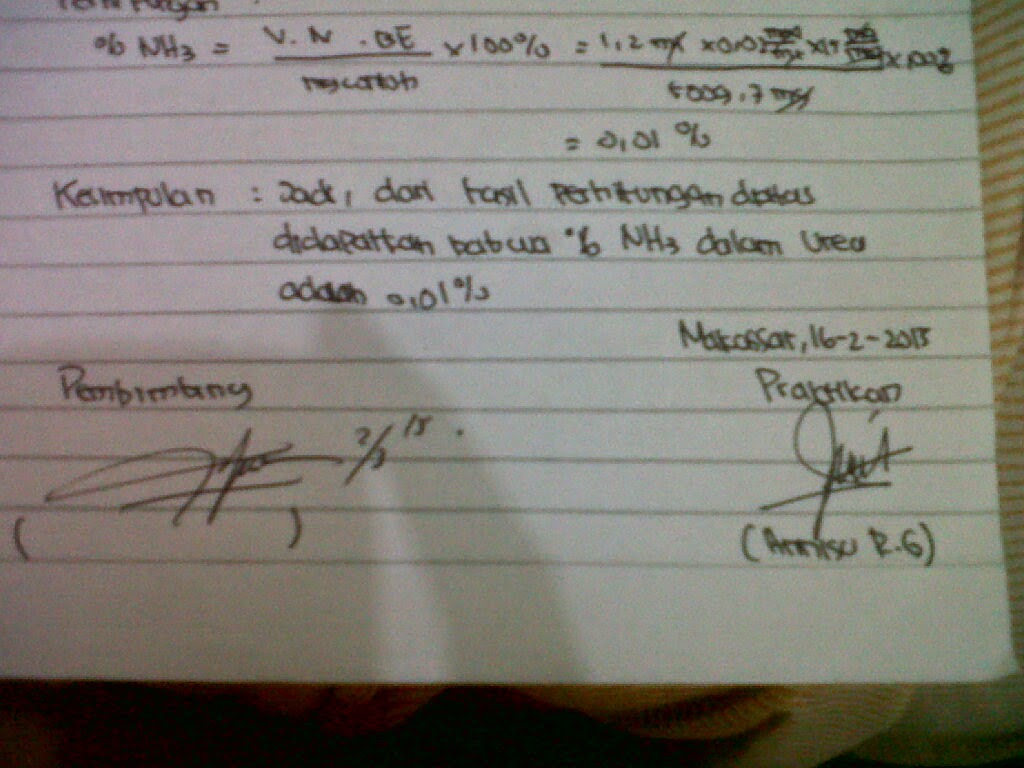 Perhitungan :
% NH3 = V.N.BE / mg contoh x 100% = 1,2 ml x 0,02 mgrl/ml x 17 / 5009,7 mg x 100%
= 0,01 %
Kesimpulan : Jadi, dari hasil Perhitungan diatas
didapatkan bahwa % NH3 dalam Urea
adalah 0,01%
Makassar, 16-2-2015
Pembimbing Praktikan
2/3 15.
( ) (Annisu R.G)